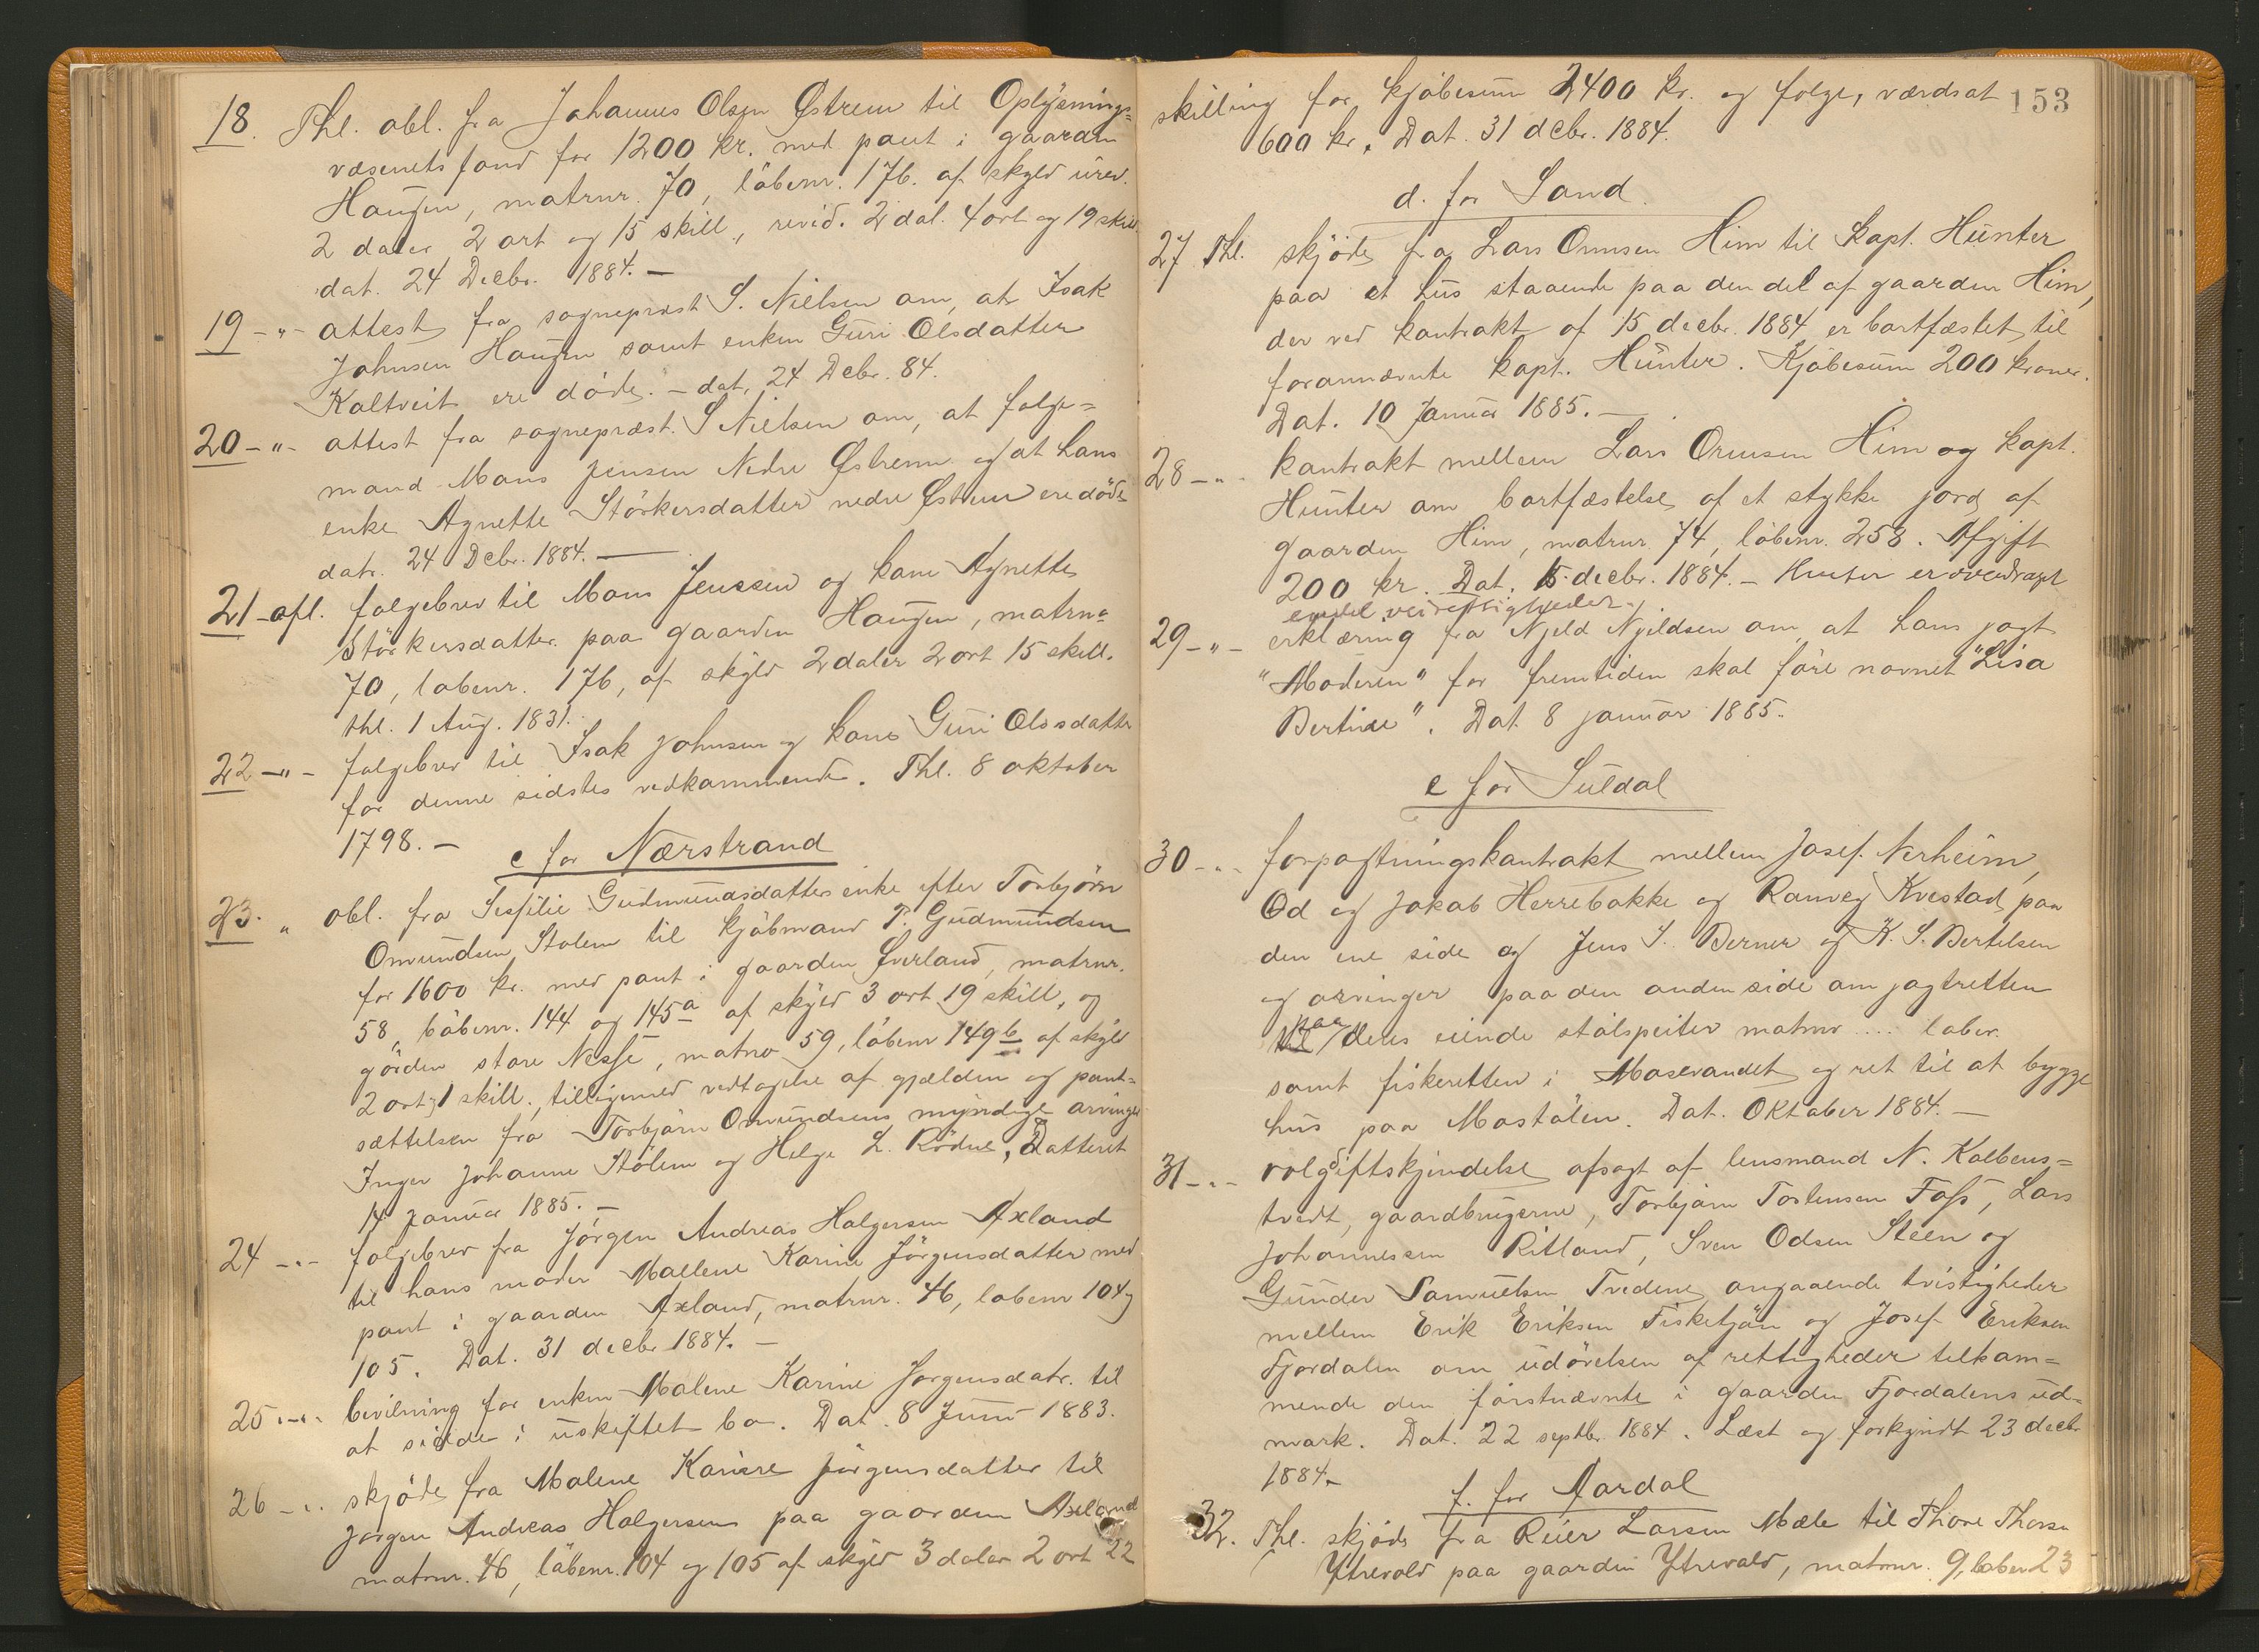 18. Thl. obl. fra Johannes Olsen Østrem til Oplysnings=
væsenets fond for 1200 kr. med pant i gaarden
Haugen, matrnr. 70, löbenr. 176. af skyld urev.
2 daler 2 ort og 15 skill, revid. 2 dal. 4 ort og 19 skill.
dat. 24 Decbr. 1884. —
19 - " - attest fra sogneprest S. Nielsen om, at Isak
Johnsen Haugen samt enken Guri Olsdatter
Kaltveit ere døde. - dat. 24 Debr. 84.
20 - " - attest fra sognepræst. S Nielsen om, at folge=
mand Mans Jensen Nedre Østrem og at hans
enke Agnette Störkersdatter nedre Østrem ere döde
dat. 24 Debr. 1884. —
21 - afl. folgebrev til Mons Jenssen og kone Agnette
Störkersdatter paa gaarden Haugen, matrnr
70, lobenr. 176, af skyld 2 daler 2 ort 15 skill.
thl. 1 Aug. 1831.
22 - " - folgebrev til Isak Johnsen og kone Guri Olsdatter
for denne sidstes vedkommende. Thl. 8 oktober
1798. —
c for Nærstrand
23. " obl. fra Gudmundsdatter enke efter Torbjörn
Omundsen Stolem til kjöbmand P. Gudmundsen
for 1600 kr. med pant i gaarden Sverland, matrnr.
58, löbenr. 144 og 145a af skyld 3 ort 19 skill, og
gården store Nesse, matno 59, löbenr 149b af skyld
2 ort 1 skill., tilligemed vedtagelse af gjælden og pant=
sættelsen fra Torbjørn Omundsens myndige arvinger
Inger Johanne Stölem og Helge L. Rödne, Datteret
14 Januar 1885. —
24 - " - folgebrev fra Jørgen Andreas Holgersen Axland
til hans moder Mallene Karine Jörgensdatter med
pant i gaarden Axland, matrnr. 46, lobenr 104 og
105. Dat. 31 decbr 1884. —
25 - " - bevilning for enken Malene Karine Jorgensdatr. til
at sidde i uskiftet bo. Dat. 8 Juni 1883.
26 - " - skjöde fra Malene Karine Jörgensdatter til
Jorgen Andreas Holgersen paa gaarden Axland
matrnr. 46, löbenr. 104 og 105 af skyld 3 daler 2 ort 22
153
skilling for kjöbesum 2400 kr. og folge, værdsat
600 kr. Dat. 31 decbr. 1884.
d. for Sand.
27 Thl. skjöde fra Lars Ormsen Him til Kapt. Hunter
paa et hus staaende paa den del af gaarden Him,
der ved kontrakt af 15 decbr. 1884 er bortfæstet til
forannævnte kapt. Hunter. Kjöbesum 200 kroner.
Dat. 10 Januar 1885. —
28 - " - kontrakt mellem Lars Ormsen Him og kapt.
Hunter om bortfæstelse af et stykke jord af
gaarden Him, matrnr. 74, löbenr. 258. Afgift
200 kr. Dat. 15 decbr. 1884. - Hunter er overdraget
endel veirettigheder.
29 - " - erklæring fra Njeld Njeldsen om, at hans jagt
"Moderen" for fremtiden skal före navnet "Lisa
Bertine". Dat. 8 januar 1885.
e for Suldal
30 - " - forpagtningskontrakt mellem Josef Nerheim,
Od og Jakob Herrebakke og Ranveg Kvestad paa
den ene side og Jens S. Berner og K. S. Bertelsen
og arvinger paa den anden side om jagtretten
paa deres eiende stölspeiter matrnr .... løbnr.
samt fiskeretten i Mosevandet og ret til at bygge
hus paa Mostölen. Dat. Oktober 1884. —
31 - " - volgdiftskjendelse afsagt af lensmand N. Kolbens=
tvedt, gaardbrugerne, Torbjörn Torkensen Foss, Lars
Johannessen Ritland, Sven Odsen Steen og
Gunder Samuelsen Tvedene angaaende tvistigheder
mellem Erik Eriksen Fisketjön og Josef Eriksen
Fjordalen om udövelsen af rettigheder tilkom=
mende den förstnævnte i gaarden Fjordalens ud=
mark. Dat. 22 septbr. 1884. Læst og forkyndt 23 decbr
1884. -
f. for Aardal
32. Thl. skjöde fra Reier Larsen Mæle til Thore Thorsen
Ytrevold paa gaarden Ytrevold, matrnr. 9, lobenr 23